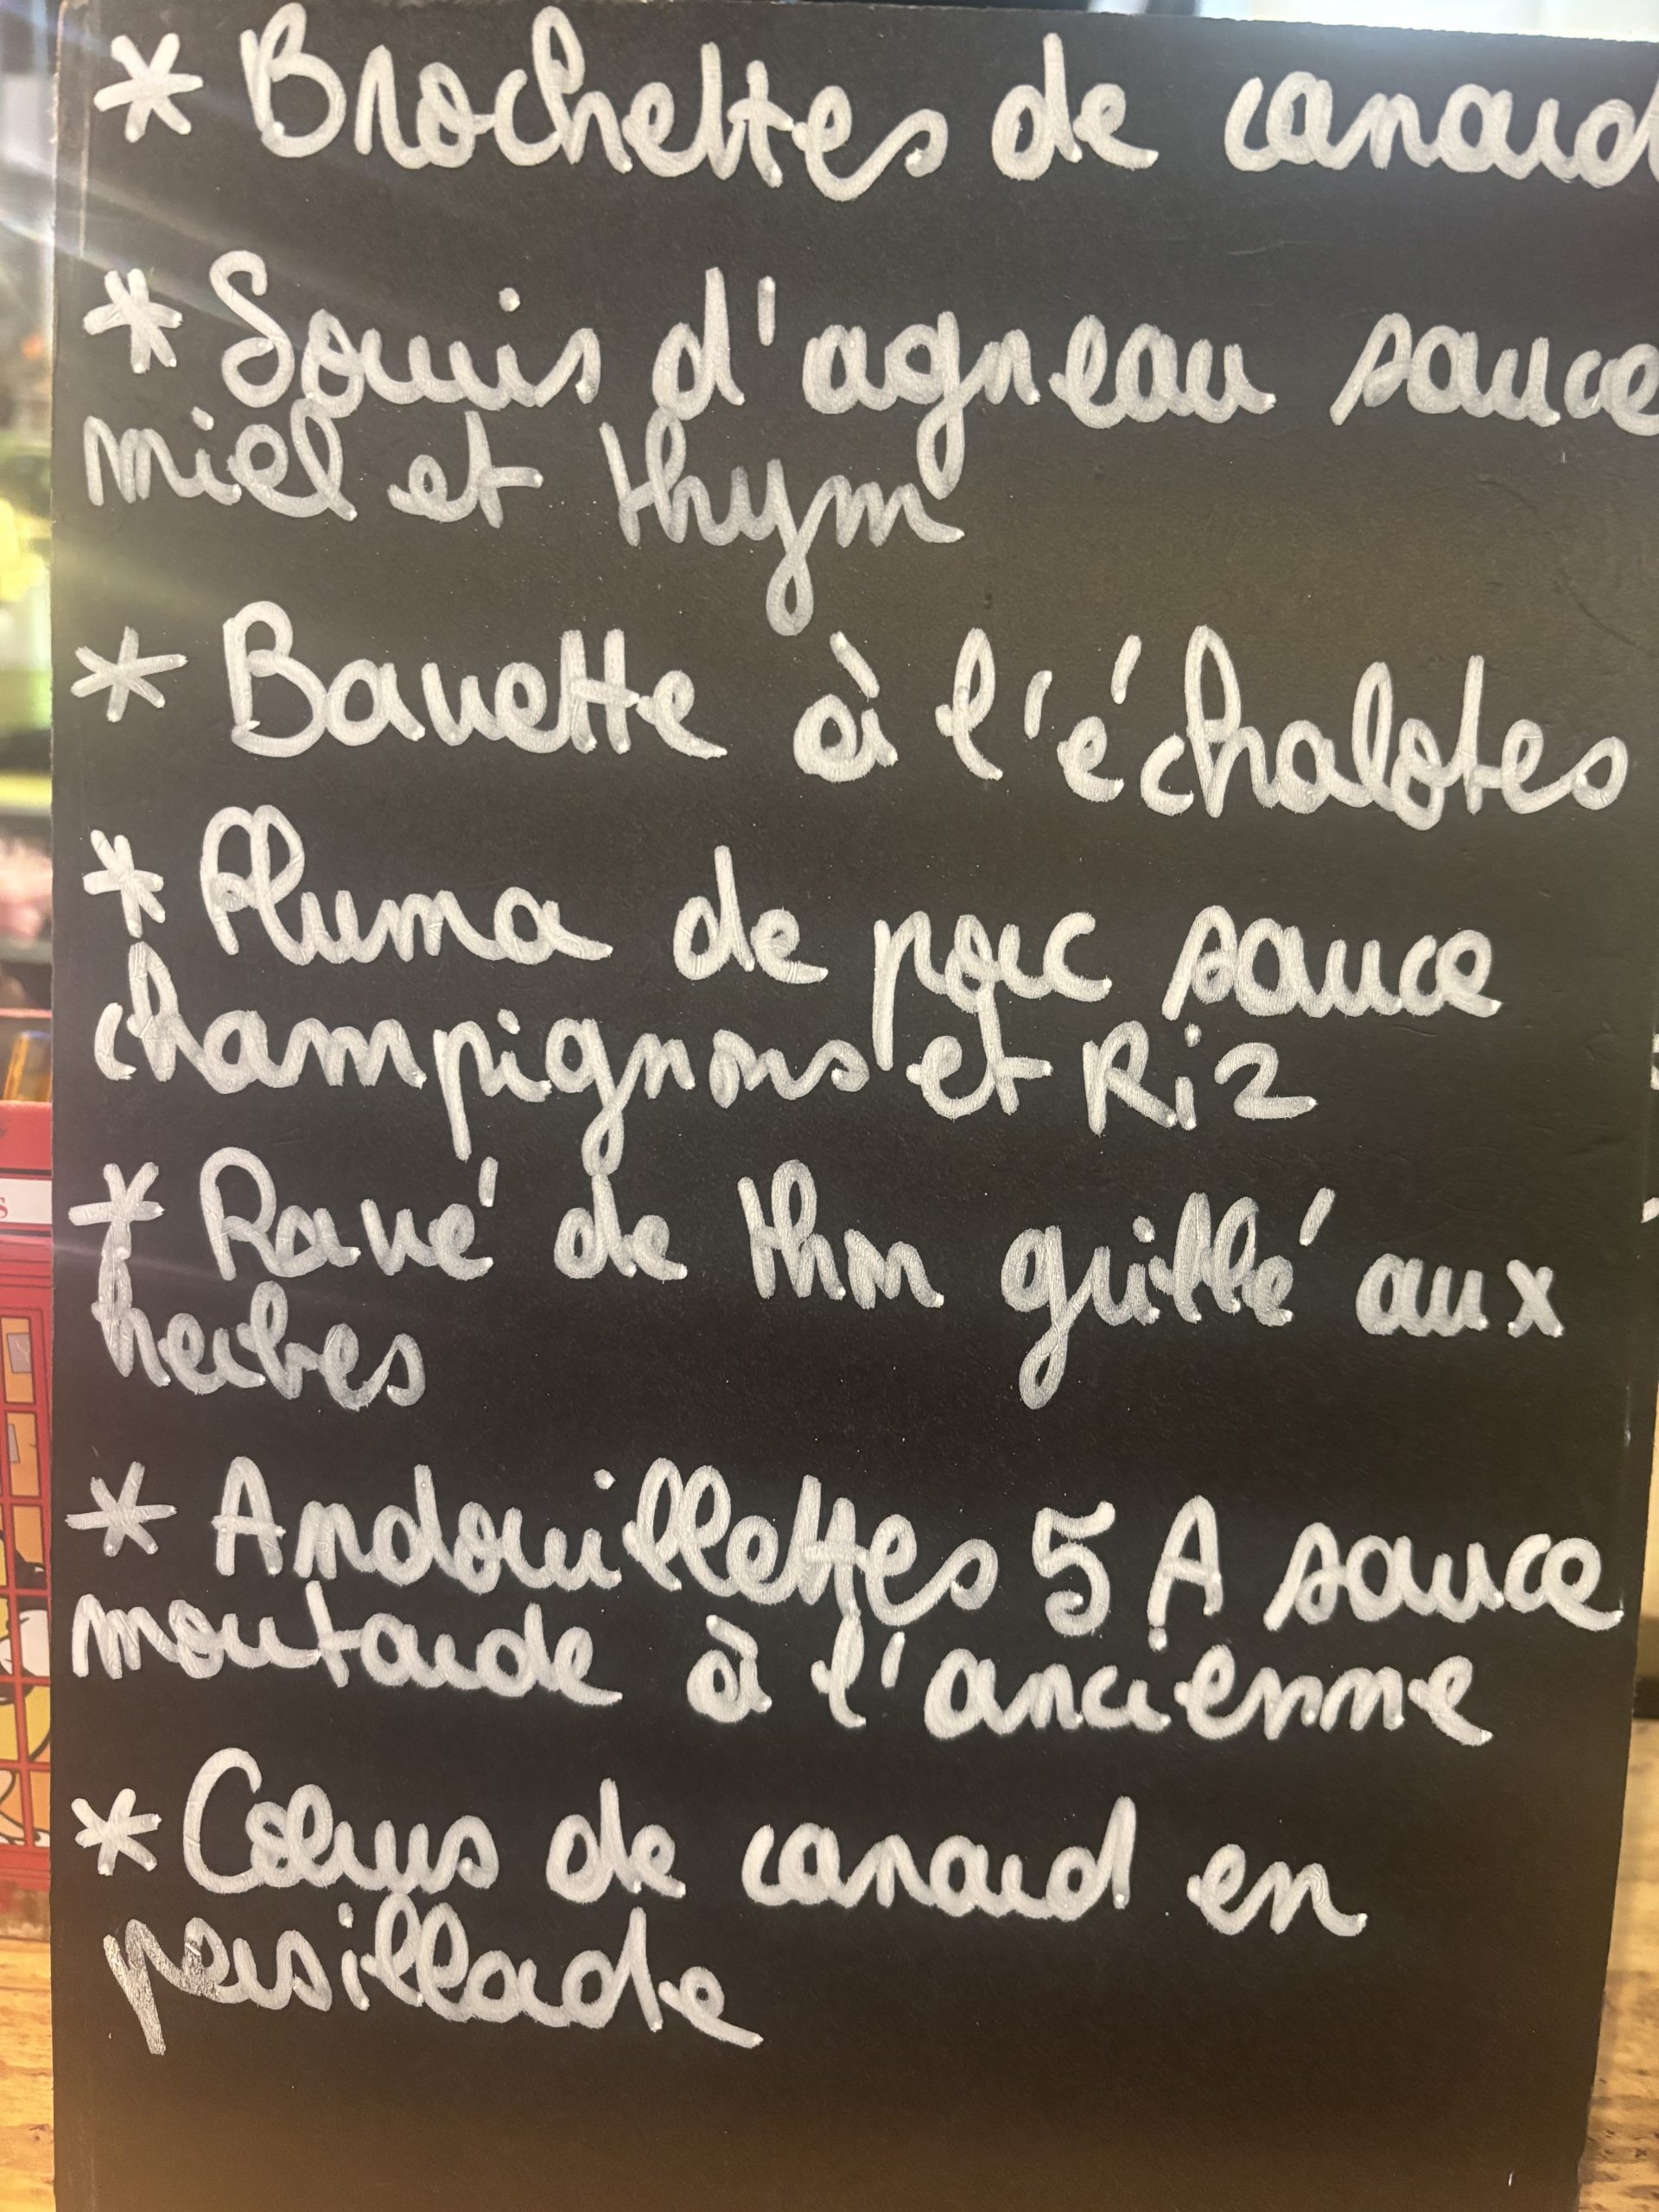 * Brochettes de canard
* Souris d'agneau sauce
miel et thym
* Bavette à l'échalotes
* Pluma de porc sauce
champignons et Riz
* Pavé de thon grillé aux
herbes
* Andouillettes 5 A sauce
moutarde à l'ancienne
* Coeurs de canard en
persillade